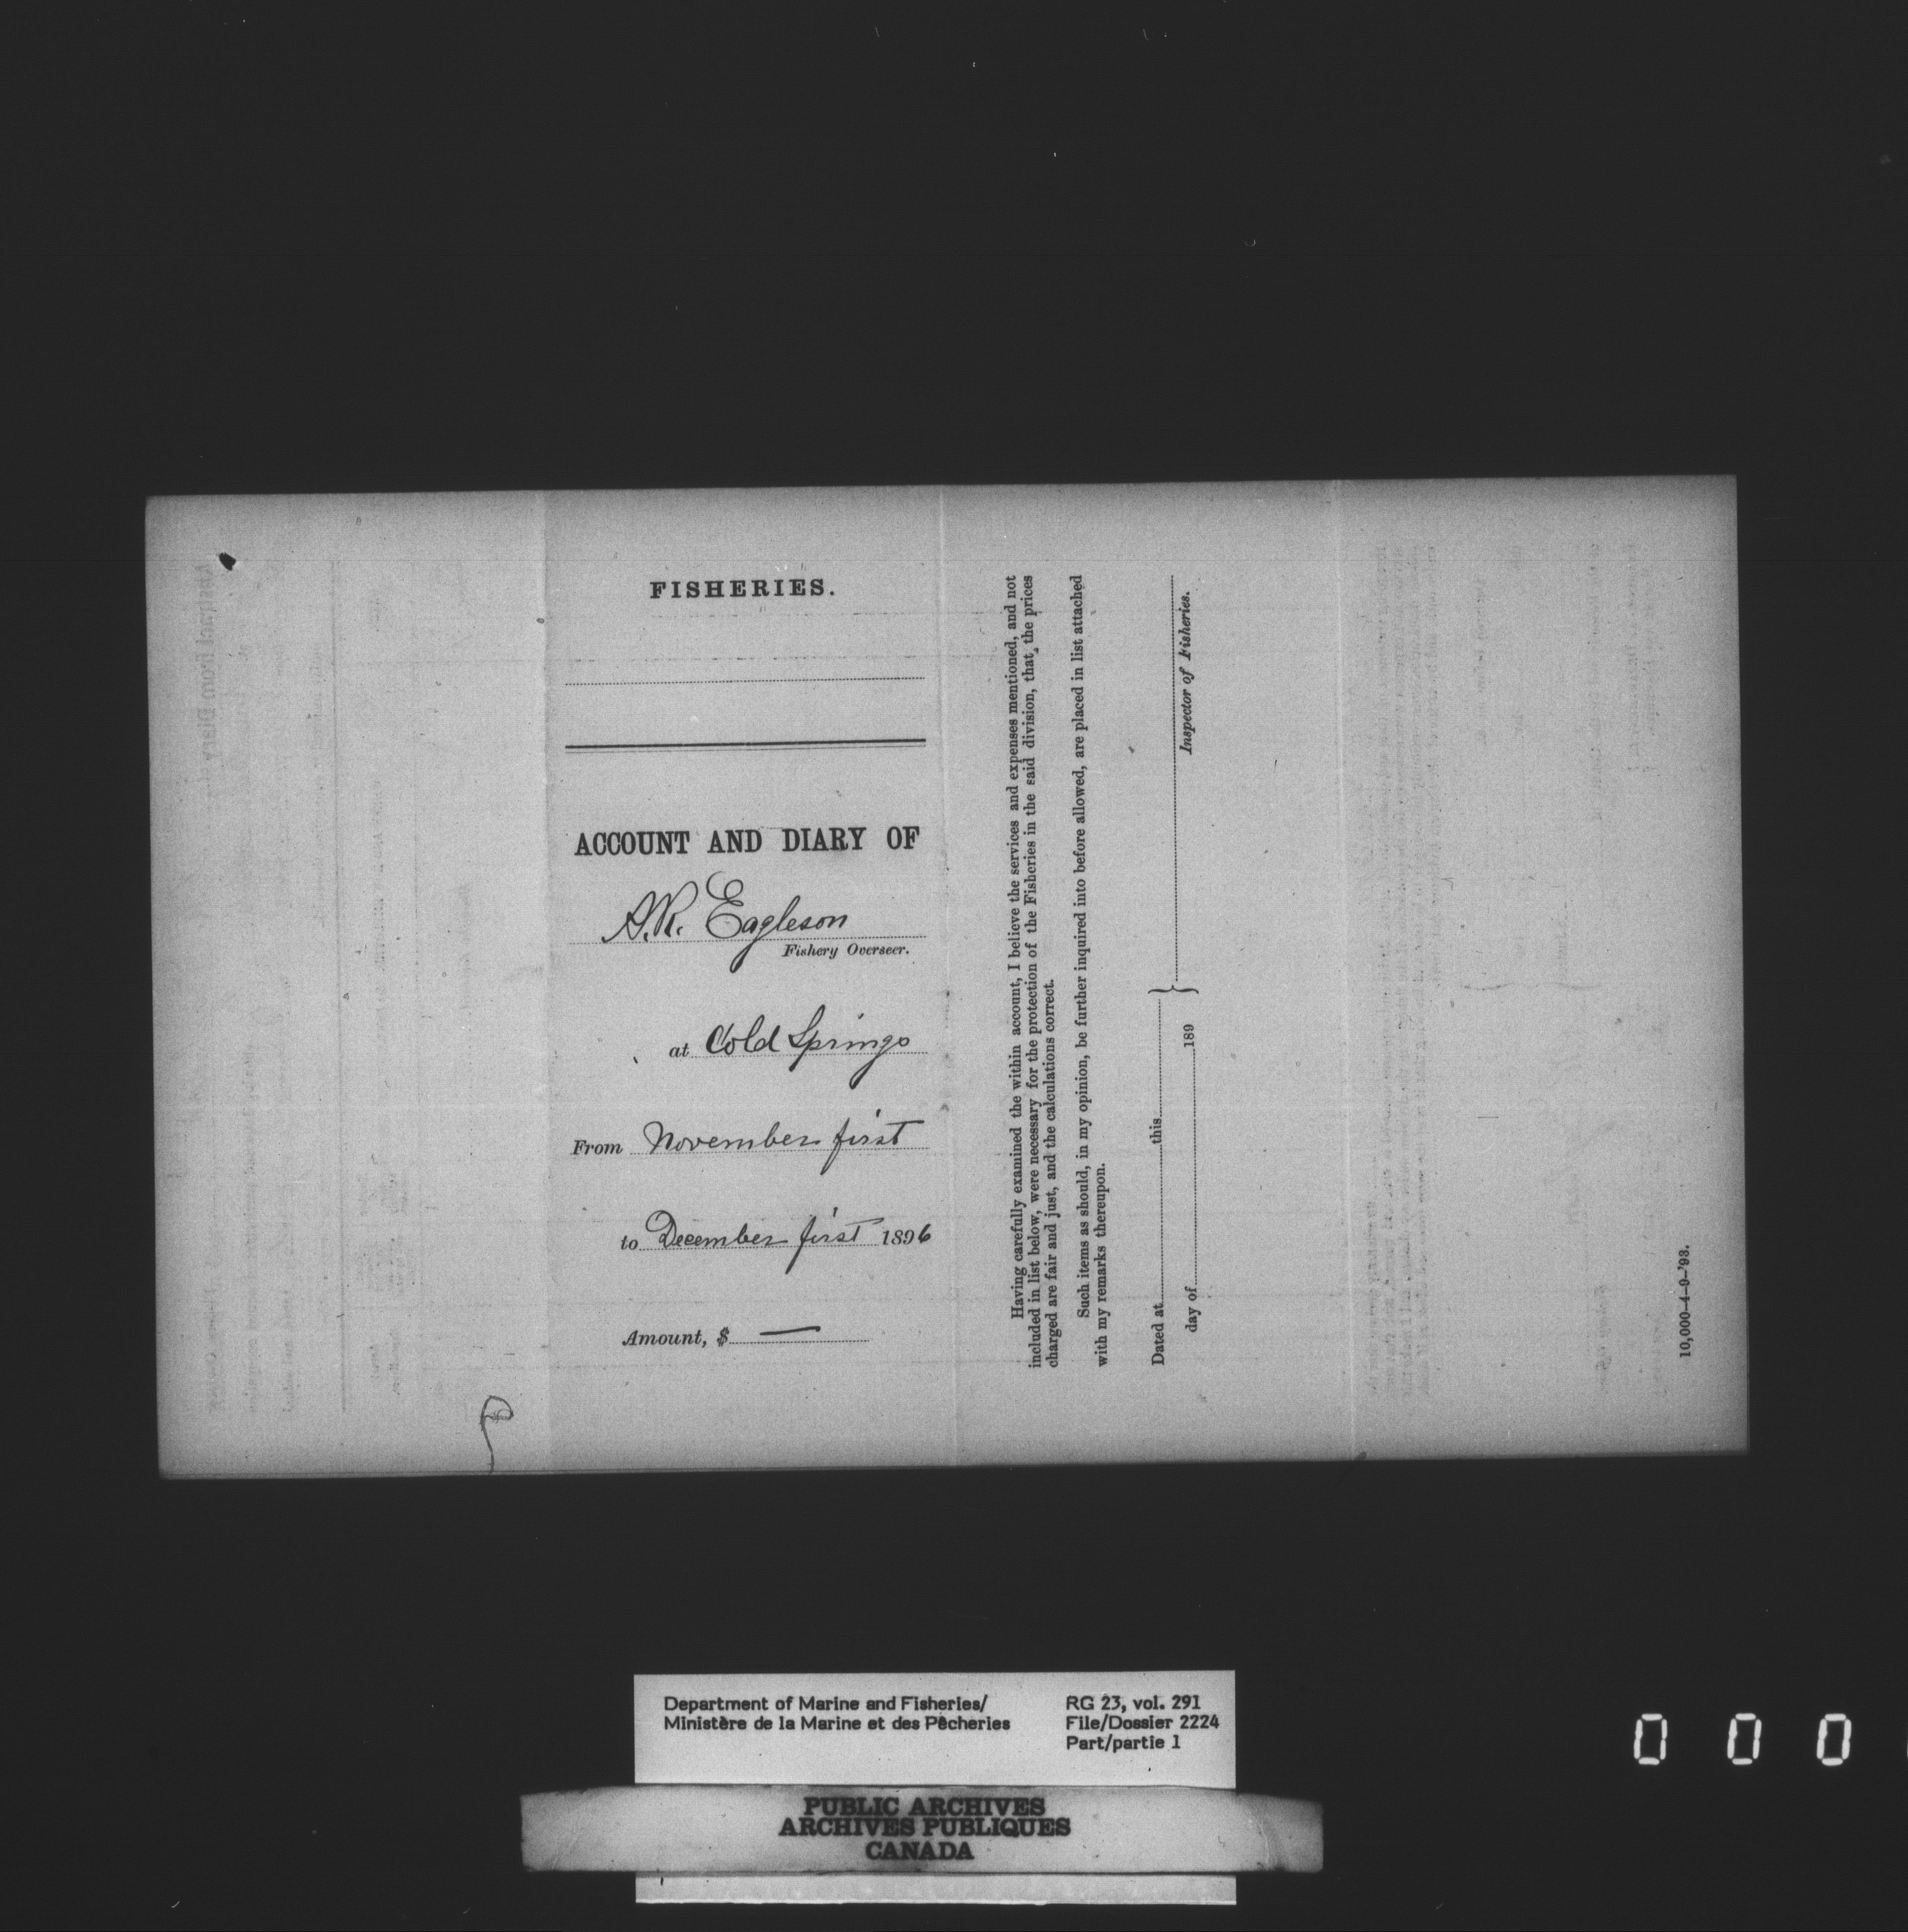 FISHERIES.
ACCOUNT AND DIARY OF
A.R. Eagleson
Fishery Overseer.
at Cold Springs
From November first
to December first 1896
Amount, $ —
Having carefully examined the within account, I believe the services and expenses mentioned, and not
included in list below, were necessary for the protection of the Fisheries in the said division, that the prices
charged are fair and just, and the calculations correct.
Such items as should, in my opinion, be further inquired into before allowed, are placed in list attached
with my remarks thereupon.
Dated at this
day of 189
Inspector of Fisheries.
10,000-4-9-'93.
Department of Marine and Fisheries/
Ministère de la Marine et des Pêcheries
RG 23, vol. 291
File/Dossier 2224
Part/partie 1
PUBLIC ARCHIVES
ARCHIVES PUBLIQUES
CANADA
0 0 0